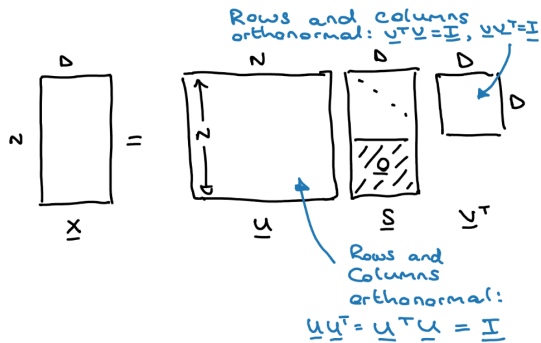 Rows and columns
orthonormal: V^T V = I, V V^T = I
D
N
D
D
N
=
N
D
0
X
U
S
V^T
Rows and
Columns
orthonormal:
U U^T = U^T U = I